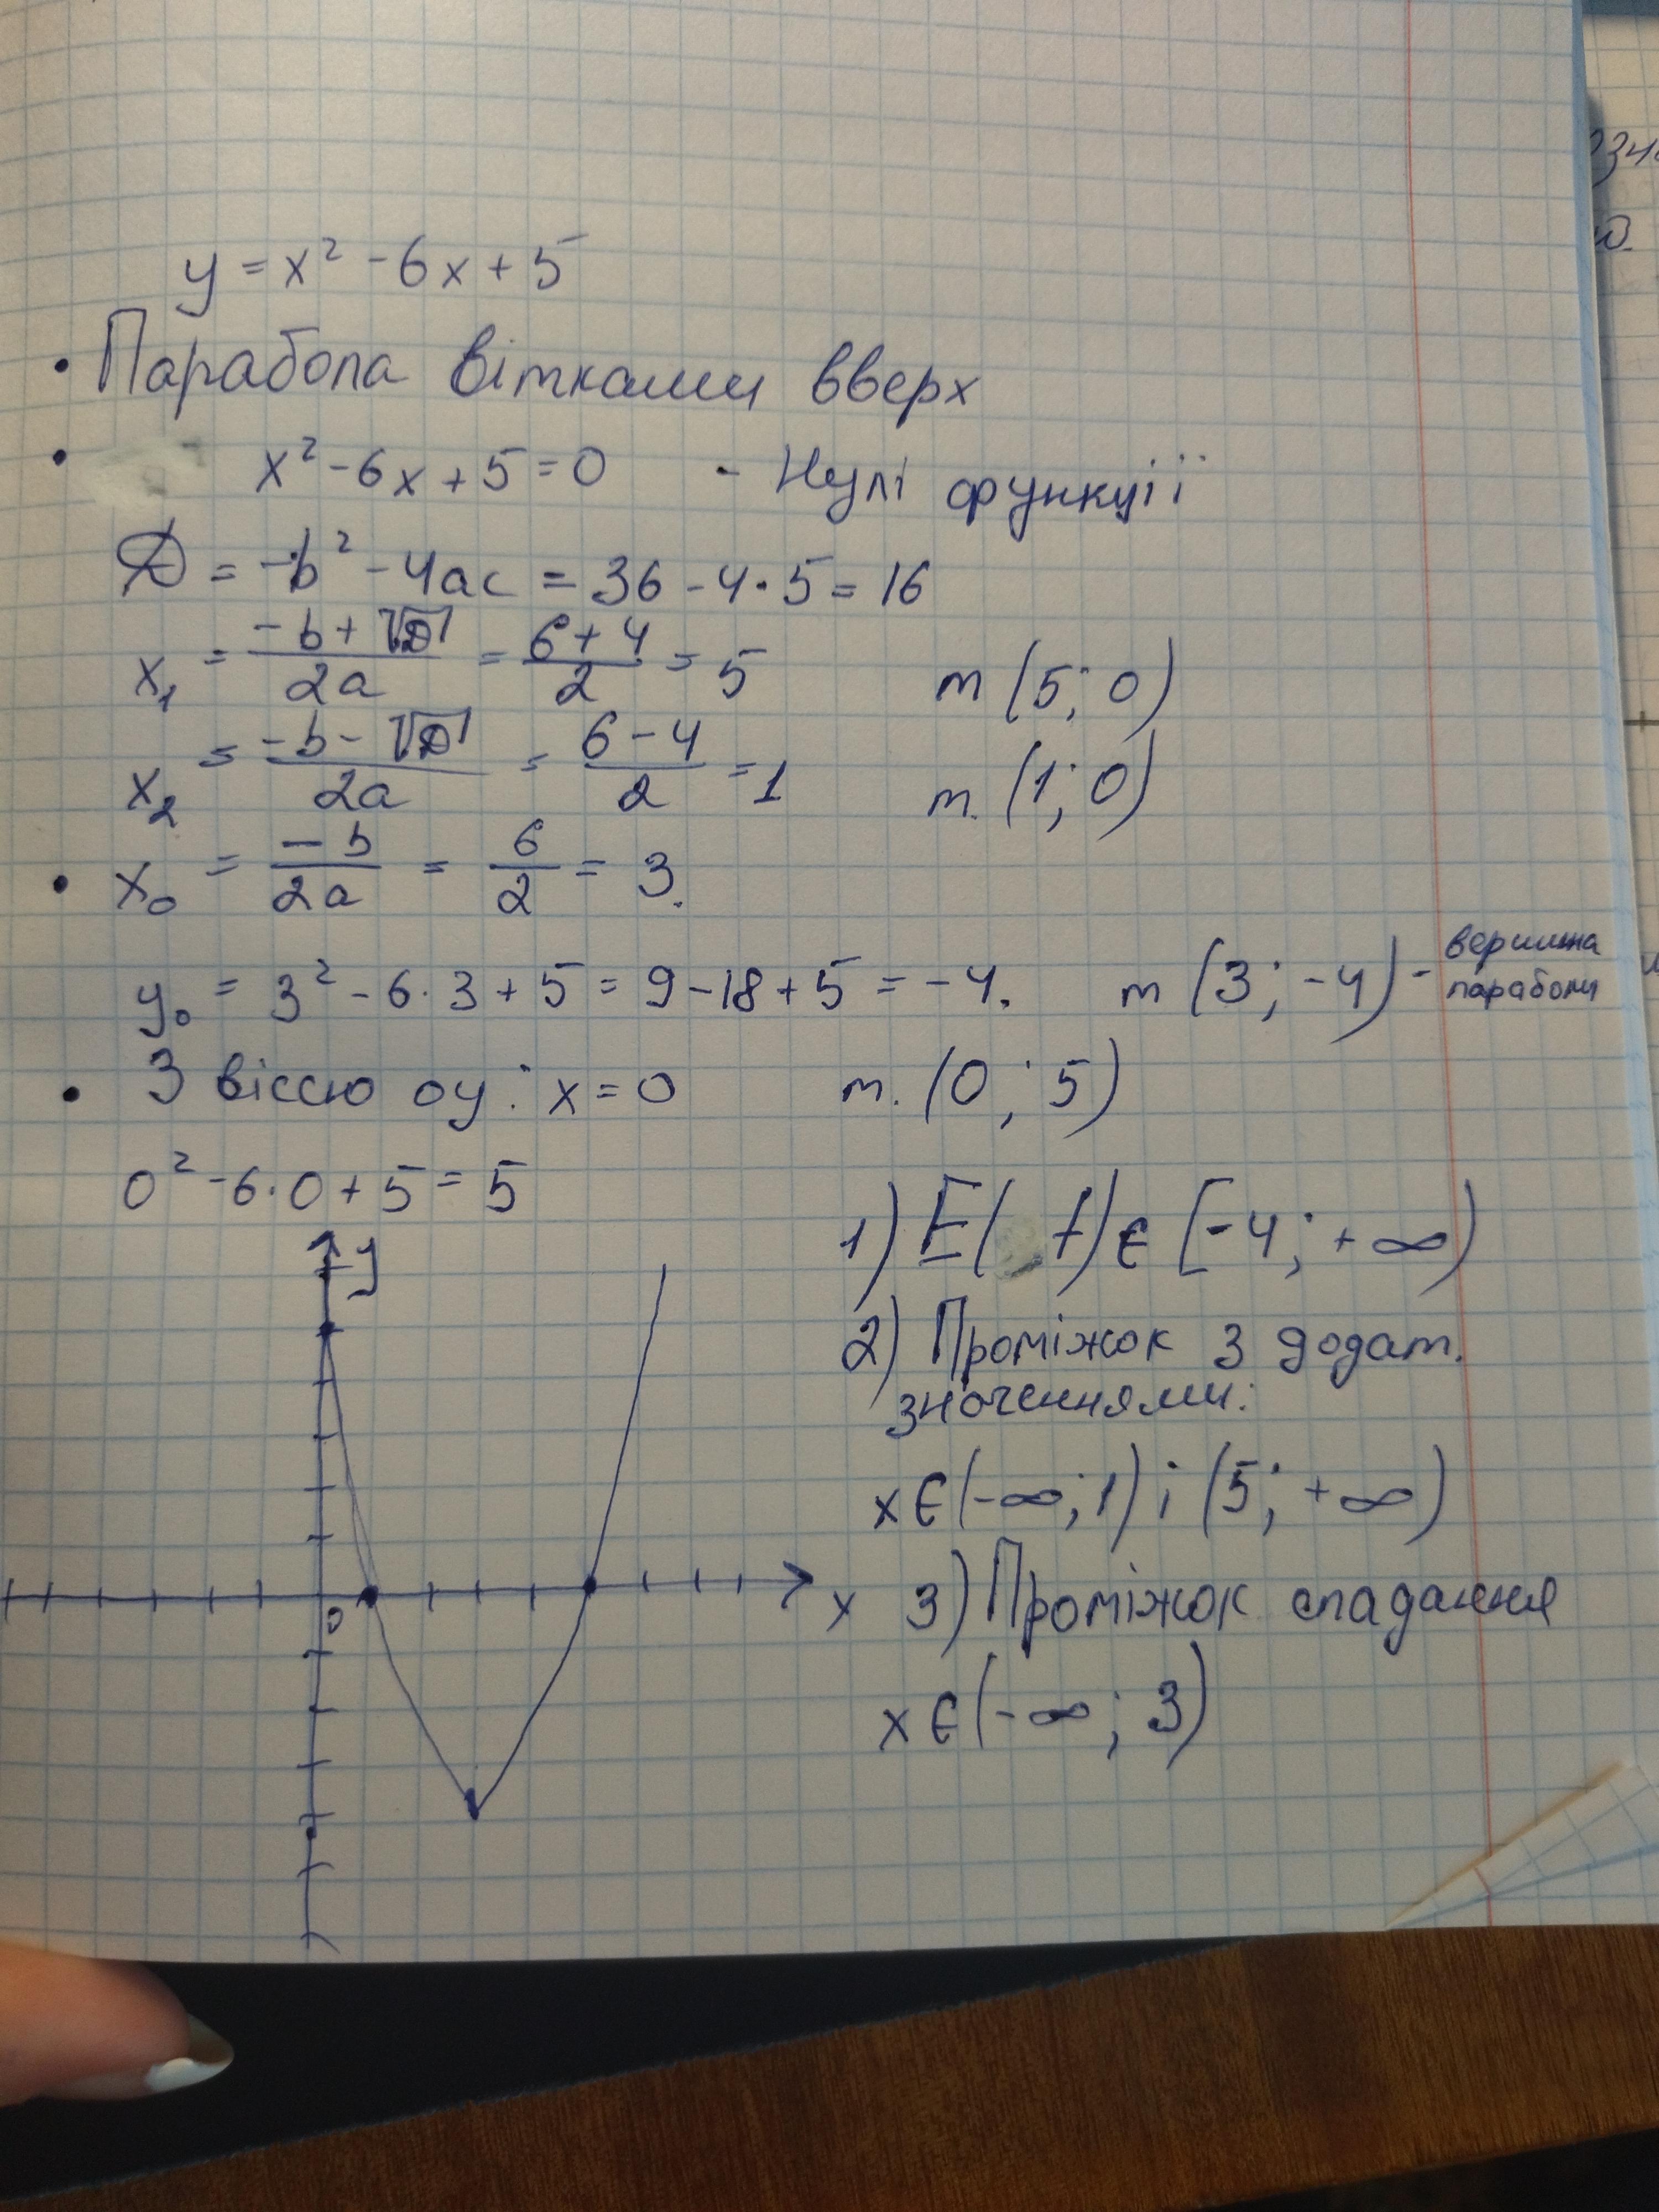 y = x² - 6x + 5
• Парабола вітками вверх
• x² - 6x + 5 = 0 - Нулі функції
D = -b² - 4ac = 36 - 4·5 = 16
x₁ = (-b + √D)/2a = (6 + 4)/2 = 5 т (5; 0)
x₂ = (-b - √D)/2a = (6 - 4)/2 = 1 т. (1; 0)
• x₀ = -b/2a = 6/2 = 3.
y₀ = 3² - 6·3 + 5 = 9 - 18 + 5 = -4. т (3; -4) - вершина
параболи
• З віссю oy: x = 0 т. (0; 5)
0² - 6·0 + 5 = 5
1) E(f) ∈ [-4; +∞)
y
2) Проміжок з додат.
значеннями:
x ∈ (-∞; 1) і (5; +∞)
0
x
3) Проміжок спадання
x ∈ (-∞; 3)